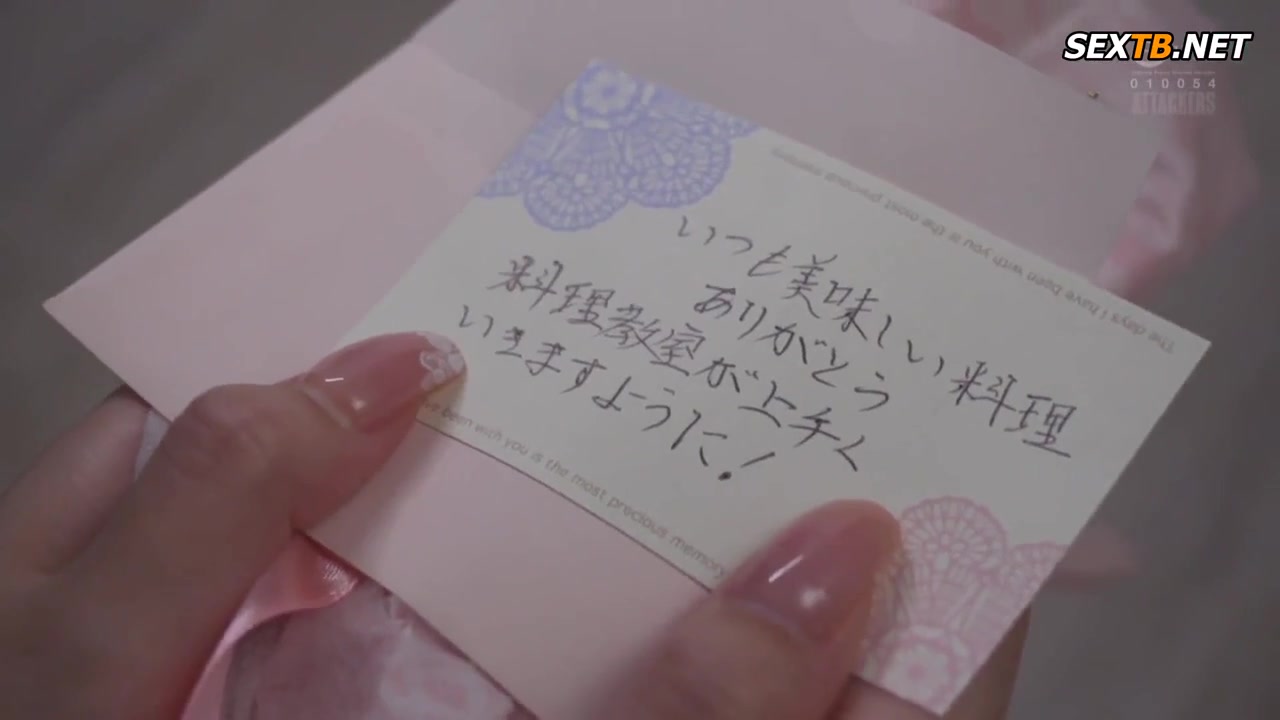 SEXTB.NET
010054
ATTACKERS
The days I have been with you is the most precious memory
いつも美味しい料理
ありがとう
料理教室が上手く
いきますように!
been with you is the most precious memory